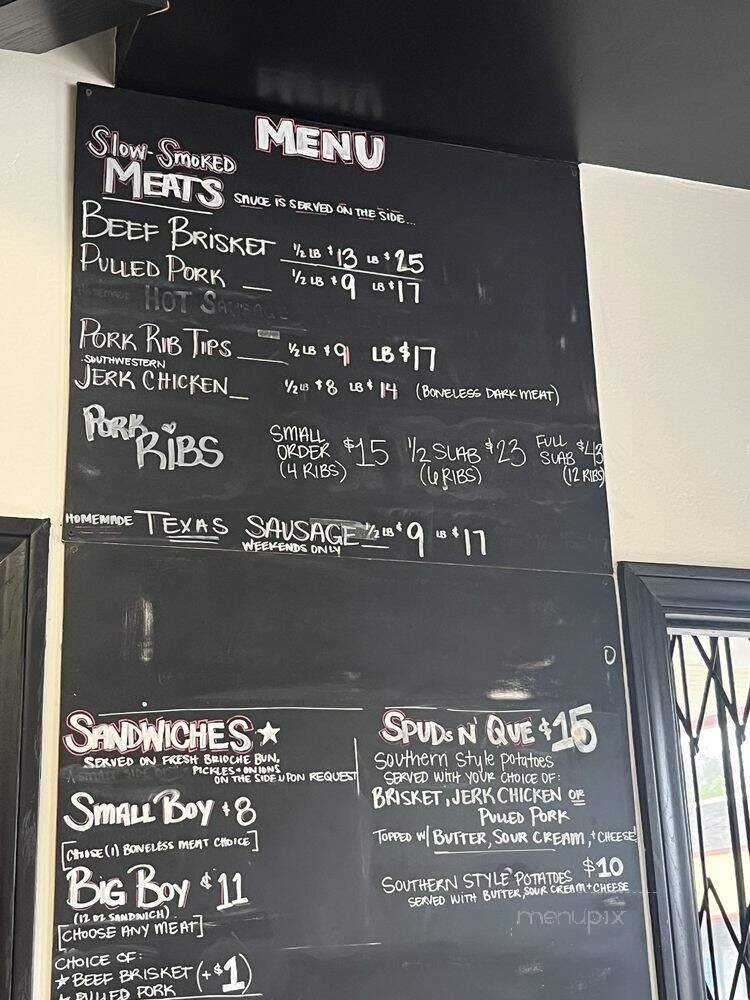 MENU
SLOW-SMOKED
MEATS
SAUCE IS SERVED ON THE SIDE...
BEEF BRISKET ½ LB $13 LB $25
PULLED PORK ½ LB $9 LB $17
HOT SAUSAGE
PORK RIB TIPS ½ LB $9 LB $17
SOUTHWESTERN
JERK CHICKEN ½ LB $8 LB $14 (BONELESS DARK MEAT)
PORK RIBS
SMALL ORDER (4 RIBS) $15
½ SLAB (6 RIBS) $23
FULL SLAB (12 RIBS) $43
HOMEMADE TEXAS SAUSAGE ½ LB $9 LB $17
WEEKENDS ONLY
SANDWICHES★
SERVED ON FRESH BRIOCHE BUN,
PICKLES + ONIONS
ON THE SIDE UPON REQUEST
SMALL BOY $8
[CHOSE (1) BONELESS MEAT CHOICE]
BIG BOY $11
(12 OZ SANDWICH)
[CHOOSE ANY MEAT]
CHOICE OF:
★ BEEF BRISKET (+$1)
★ PULLED PORK
SPUDS N' QUE $15
Southern Style potatoes
SERVED WITH YOUR CHOICE OF:
BRISKET, JERK CHICKEN OR
PULLED PORK
TOPPED W/ BUTTER, SOUR CREAM, + CHEESE!
SOUTHERN STYLE POTATOES $10
SERVED WITH BUTTER, SOUR CREAM + CHEESE
menupix